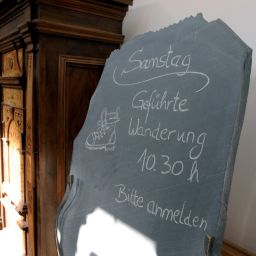 Samstag
Geführte
Wanderung
10.30 h
Bitte anmelden